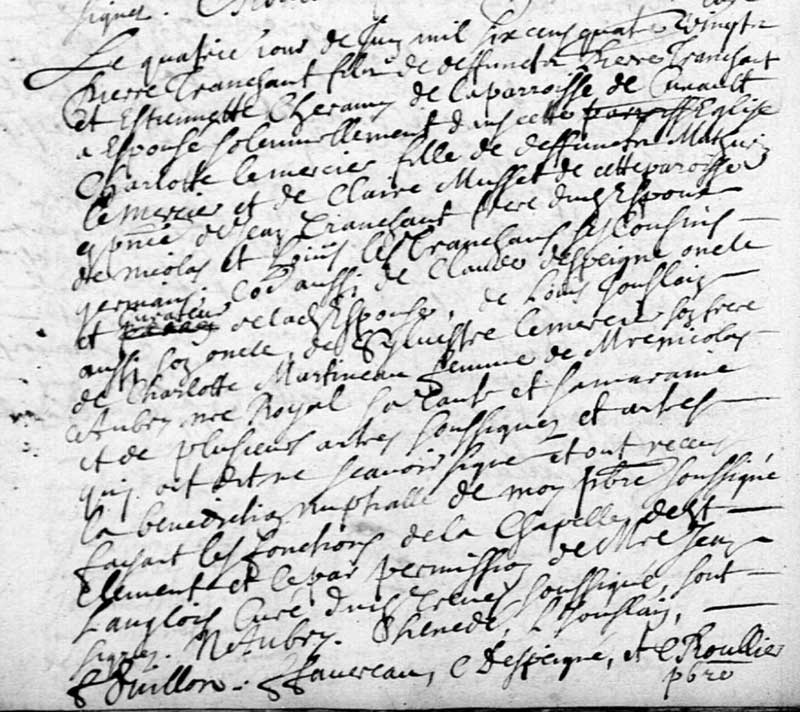 signer.
Le quatrie jour de Juin mil six cens quatre vingtz
Pierre Tranchant fils de deffunctz Pierre Tranchant
et Estiennette de la parroisse de Cunault
a Espousé solennellement dans cette Eglise
Charlotte lemercier fille de deffunctz Mathurin
lemercier et de Claire Musset de cette paroisse
en pnce de Jean Tranchant frere dud Espoux
de nicolas et Louis les Tranchans ses Cousins
germains, Co aussi de Claude despeigne oncle
et curateur de lad Espouse, de Louis Jouslain
aussi son oncle, de Sylvestre lemercier son frere
de Charlotte Martineau femme de Mre nicolas
Aubry nre Royal sa tante et sa maraine
et de plusieurs autres soussignez et autres
qui ont dit ne scavoir signé et ont receu
la benediction nuptialle de moy pbre soussigné
faisant les fonctions de la Chapelle de St
Clement et ce par permission de Mre Jean
Langlois Curé dud Treves soussigné, sont
signez. N Aubry. L Jouslain,
, C Despeigne, et C Roullier
pbre